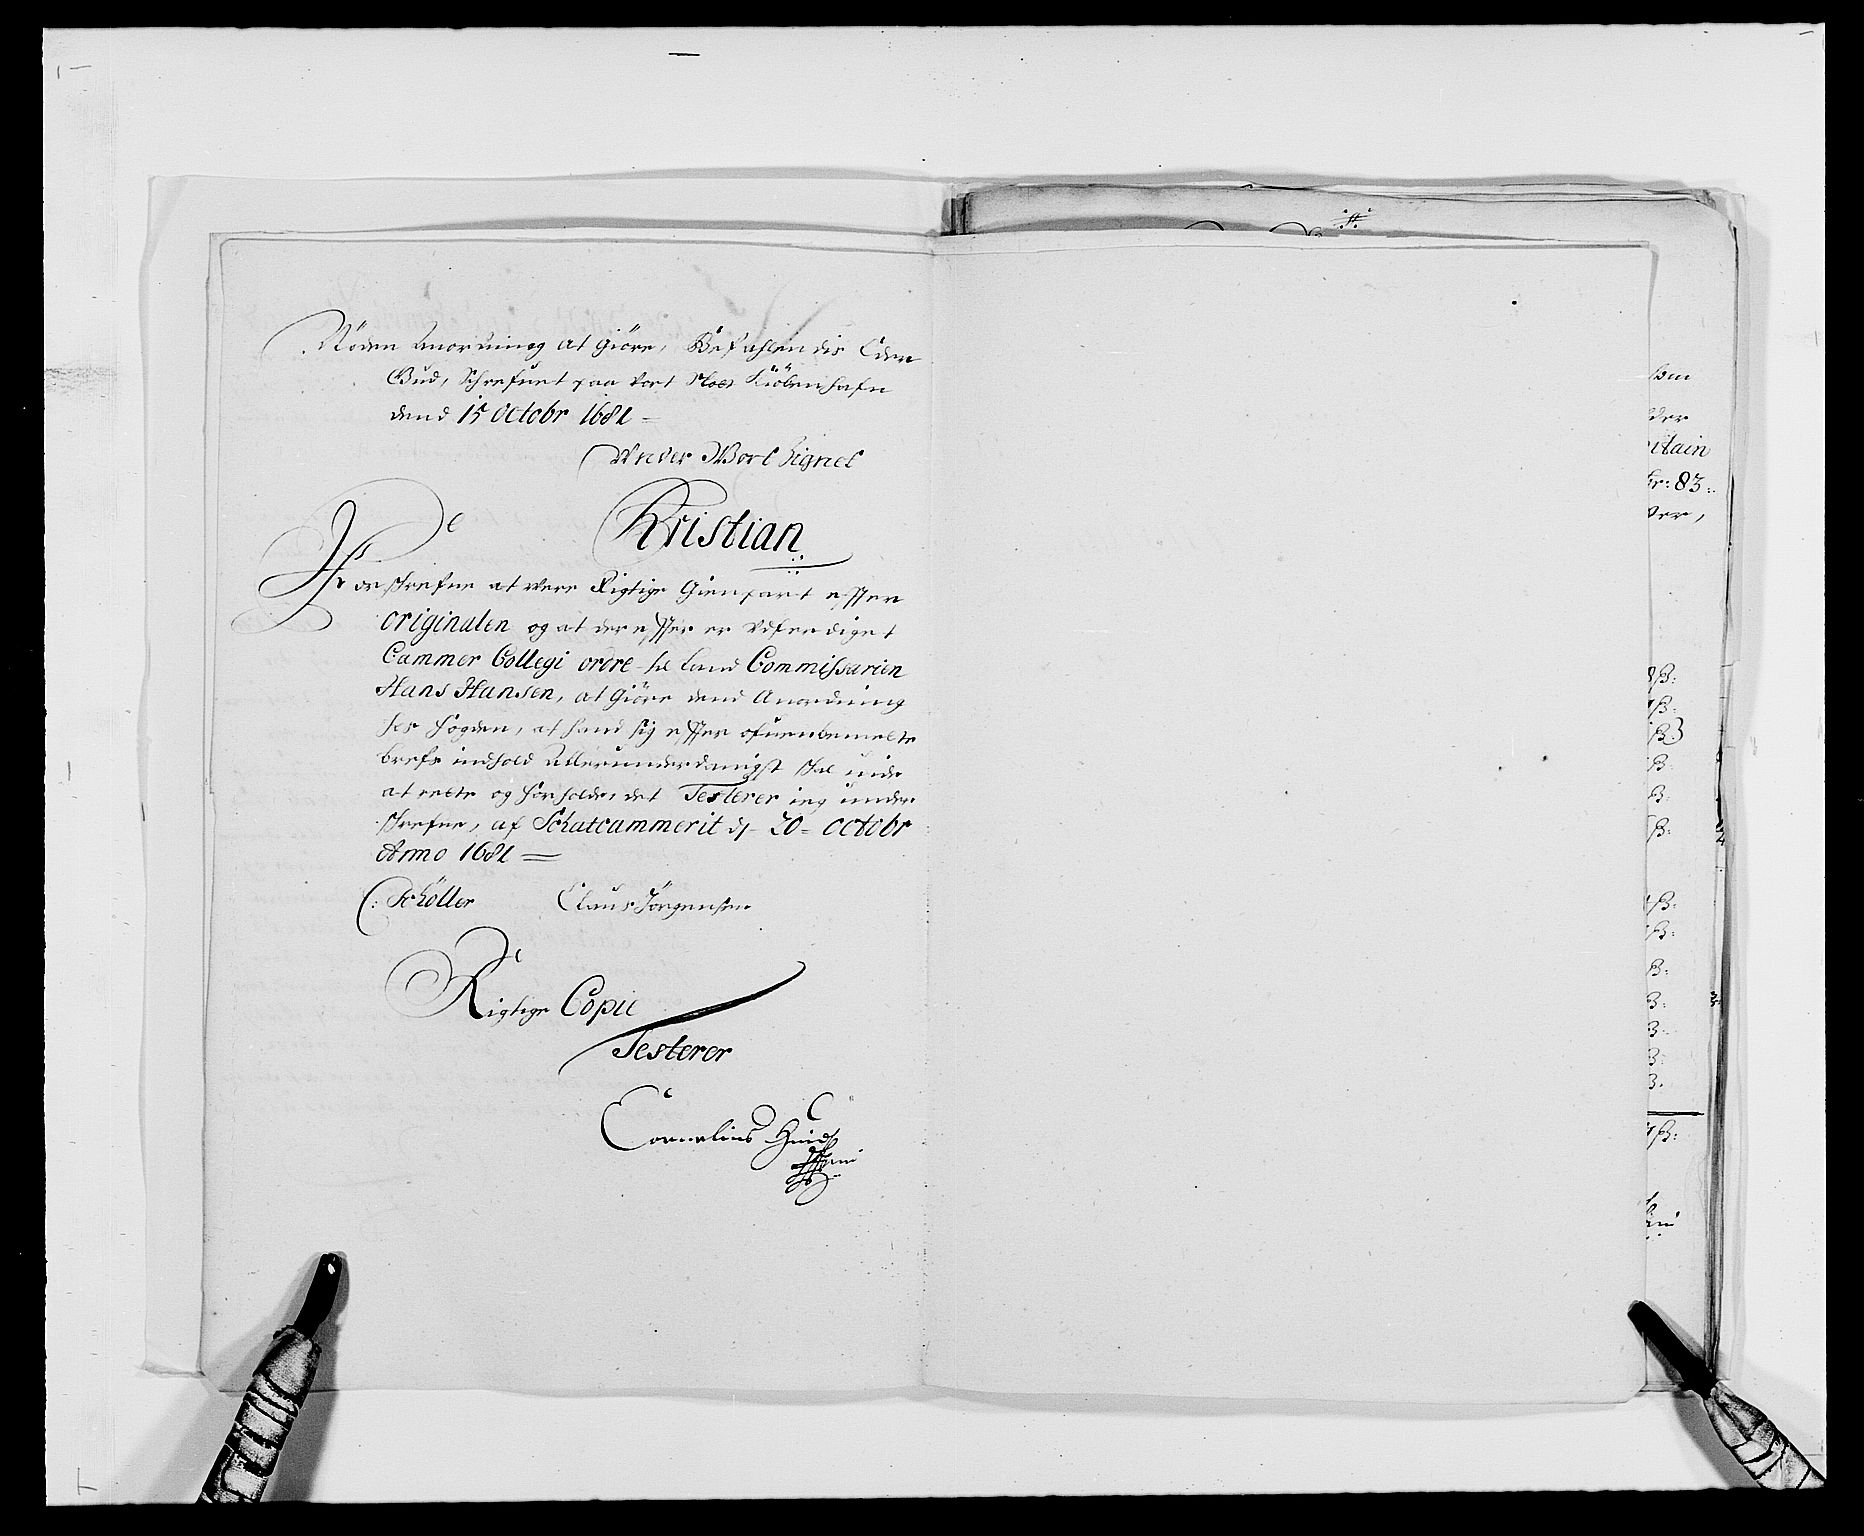 Nöden Anordning at Giöre, Befahlendis Eder
Gud, Schrefuet paa vort Slott Kiöbenhafn
dend 15 Octobr 1681 =
Under Vort Zignet
Kristian
For skrefne at vere Rigtige Gienpart effter
originalen og at der effter er udferdiget
Cammer Collegi ordre til Land Commissarien
Hans Hansen, at Giöre dend Anordning
hos fogden, at hand sig effter ofuenbemelte
brefs indhold Allerunderdanigst skal vide
at rette og forholde, det Testerer ieg under
skrefne, af Schatcammerit dj 20 = Octobr
Anno 1681 =
C: Schöller Claus Jörgensen
Rigtige Copie
Testerer
Cornelius
ßen
der
itain
br: 83 :
ver,
8 ß:
ß:
ß)
ß:
ß:
ß:
ß:
ß:
ß:
ß:
ß:
ß:
ß:
ß: